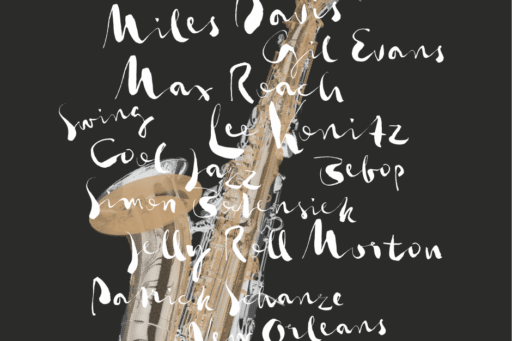 Miles Davis
Gil Evans
Max Roach
Swing
Lee Konitz
Cool Jazz
Bebop
Simon Bodensiek
Jelly Roll Morton
Patrick Schanze
New Orleans